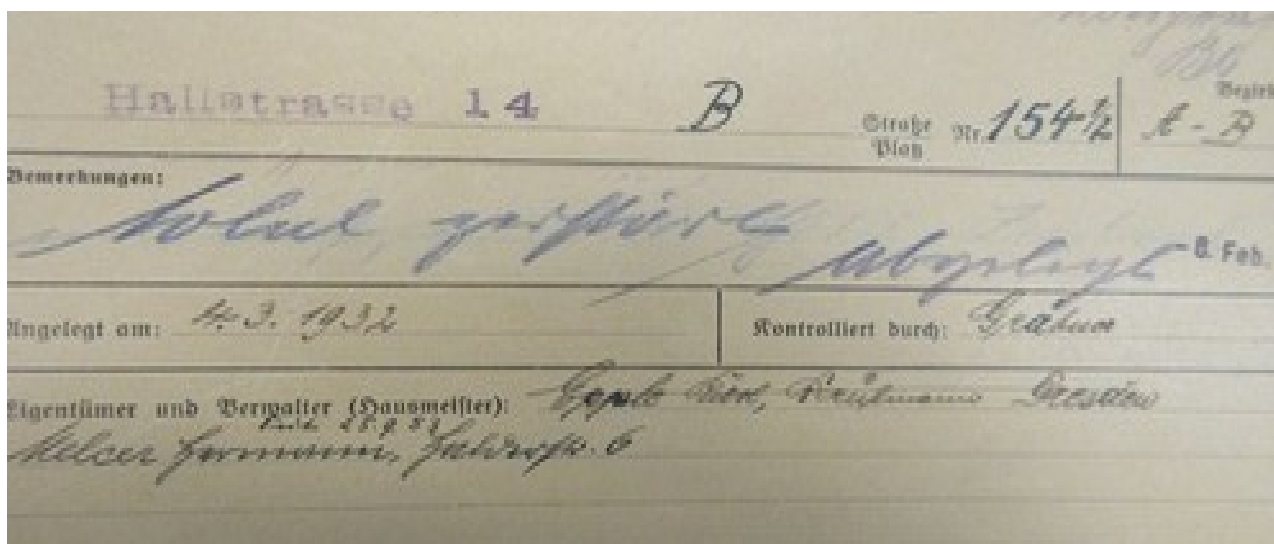 Hallstrasse 14 B Straße Platz Nr. 154 1/2 Bezirk A-B
Bemerkungen:
total zerstört abgelegt 8. Feb.
Angelegt am: 14.3.1932 Kontrolliert durch:
Eigentümer und Verwalter (Hausmeister): Kaufmann Dresden
Melcer Hermann, 6